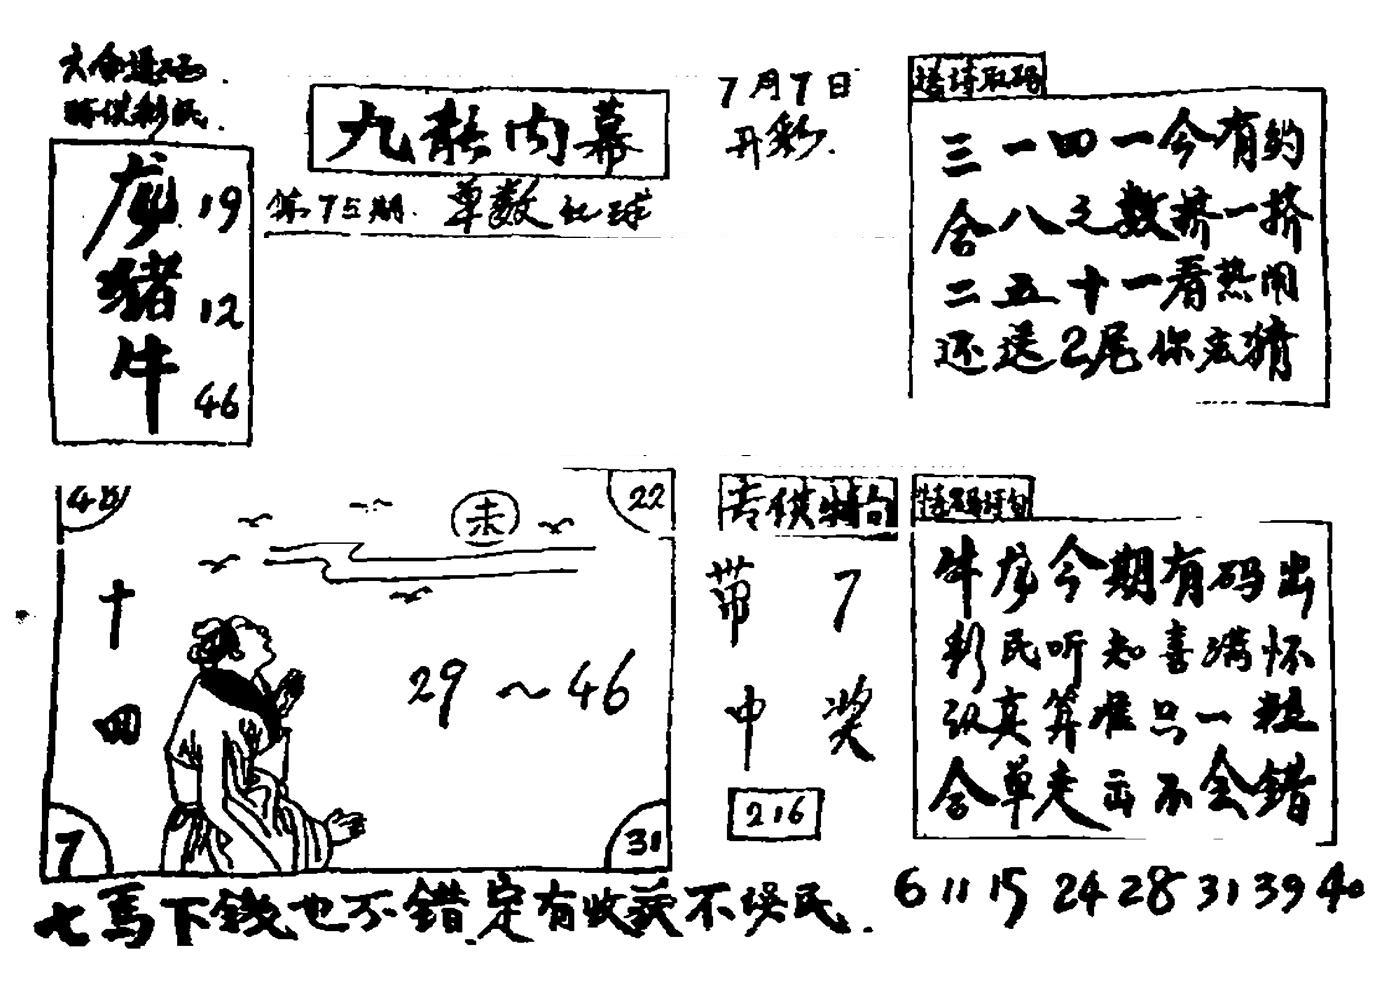 六合通码
助供彩民.
龙 19
猪 12
牛 46
九龙内幕
第75期. 草数红球
7月7日
开彩.
送诗取码
三一四一今有约
合八之数挤一挤
二五十一看热闹
还送2尾你去猜
48
22
未
十四
29～46
7
31
专供特句
带7
中奖
216
特码诗句
牛龙今期有码出
彩民听知喜满怀
认真算准只一粒
合单走出不会错
七马下钱也不错.定有收获不误民.
6 11 15 24 28 31 39 40